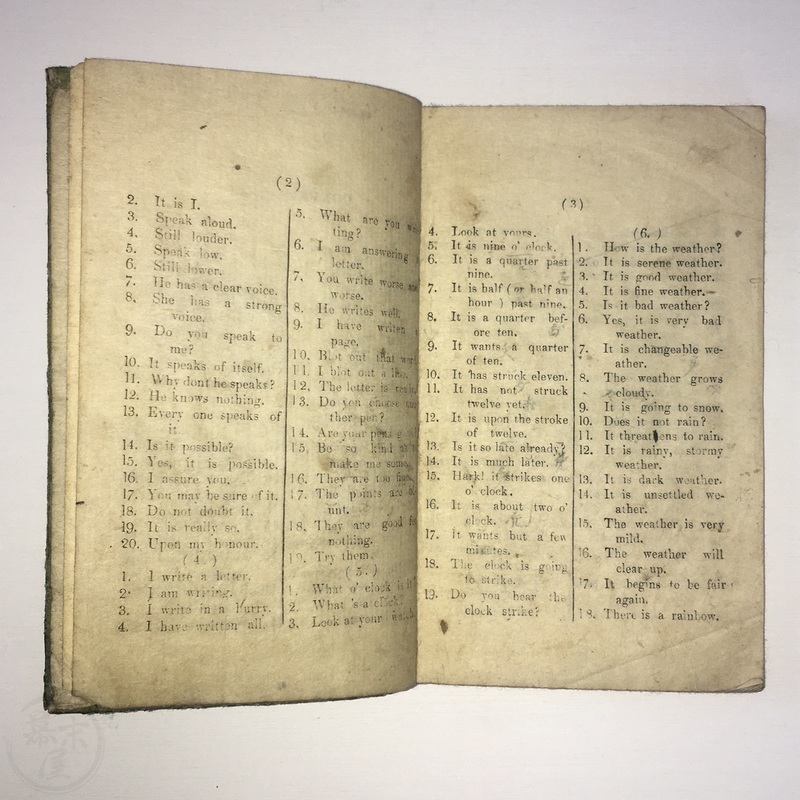 (2)
2. It is I.
3. Speak aloud.
4. Still louder.
5. Speak low.
6. Still lower.
7. He has a clear voice.
8. She has a strong
voice.
9. Do you speak to
me?
10. It speaks of itself.
11. Why dont he speaks?
12. He knows nothing.
13. Every one speaks of
it
14. Is it possible?
15. Yes, it is possible.
16. I assure you.
17. You may be sure of it.
18. Do not doubt it.
19. It is really so.
20. Upon my honour.
(4)
1. I write a letter.
2. I am writing.
3. I write in a hurry.
4. I have written all.
5. What are you
ting?
6. I am answering
letter.
7. You write worse and
worse.
8. He writes well.
9. I have writen
page.
10. Blot out that
11. I blot out a
12. The letter is
13. Do you choose
ther pen?
14. Are your pens
15. Be so kind
make me some
16. They are too
17. The points are
unt.
18. They are good
nothing.
19. Try them.
(5.)
1. What o' clock is it
2. What 's a clock
3. Look at your
(3)
4. Look at yours.
5. It is nine o' clock.
6. It is a quarter past
nine.
7. It is half (or half an
hour) past nine.
8. It is a quarter bef-
ore ten.
9. It wants a quarter
of ten.
10. It has struck eleven.
11. It has not struck
twelve yet.
12. It is upon the stroke
of twelve.
13. Is it so late already?
14. It is much later.
15. Hark! it strikes one
o' clock.
16. It is about two o'
clock.
17. It wants but a few
minutes.
18. The clock is going
to strike.
19. Do you hear the
clock strike?
(6.)
1. How is the weather?
2. It is serene weather.
3. It is good weather.
4. It is fine weather.
5. Is it bad weather?
6. Yes, it is very bad
weather.
7. It is changeable we-
ather.
8. The weather grows
cloudy.
9. It is going to snow.
10. Does it not rain?
11. It threatens to rain.
12. It is rainy, stormy
weather.
13. It is dark weather.
14. It is unsettled we-
ather.
15. The weather is very
mild.
16. The weather will
clear up.
17. It begins to be fair
again.
18. There is a rainbow.